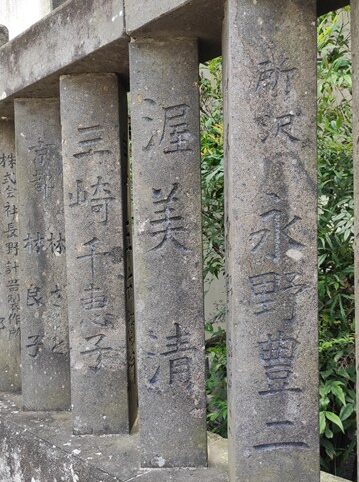 所沢 永野豊二
渥美 清
三崎千恵子
京都 林
林良子
株式会社長野計器製作所